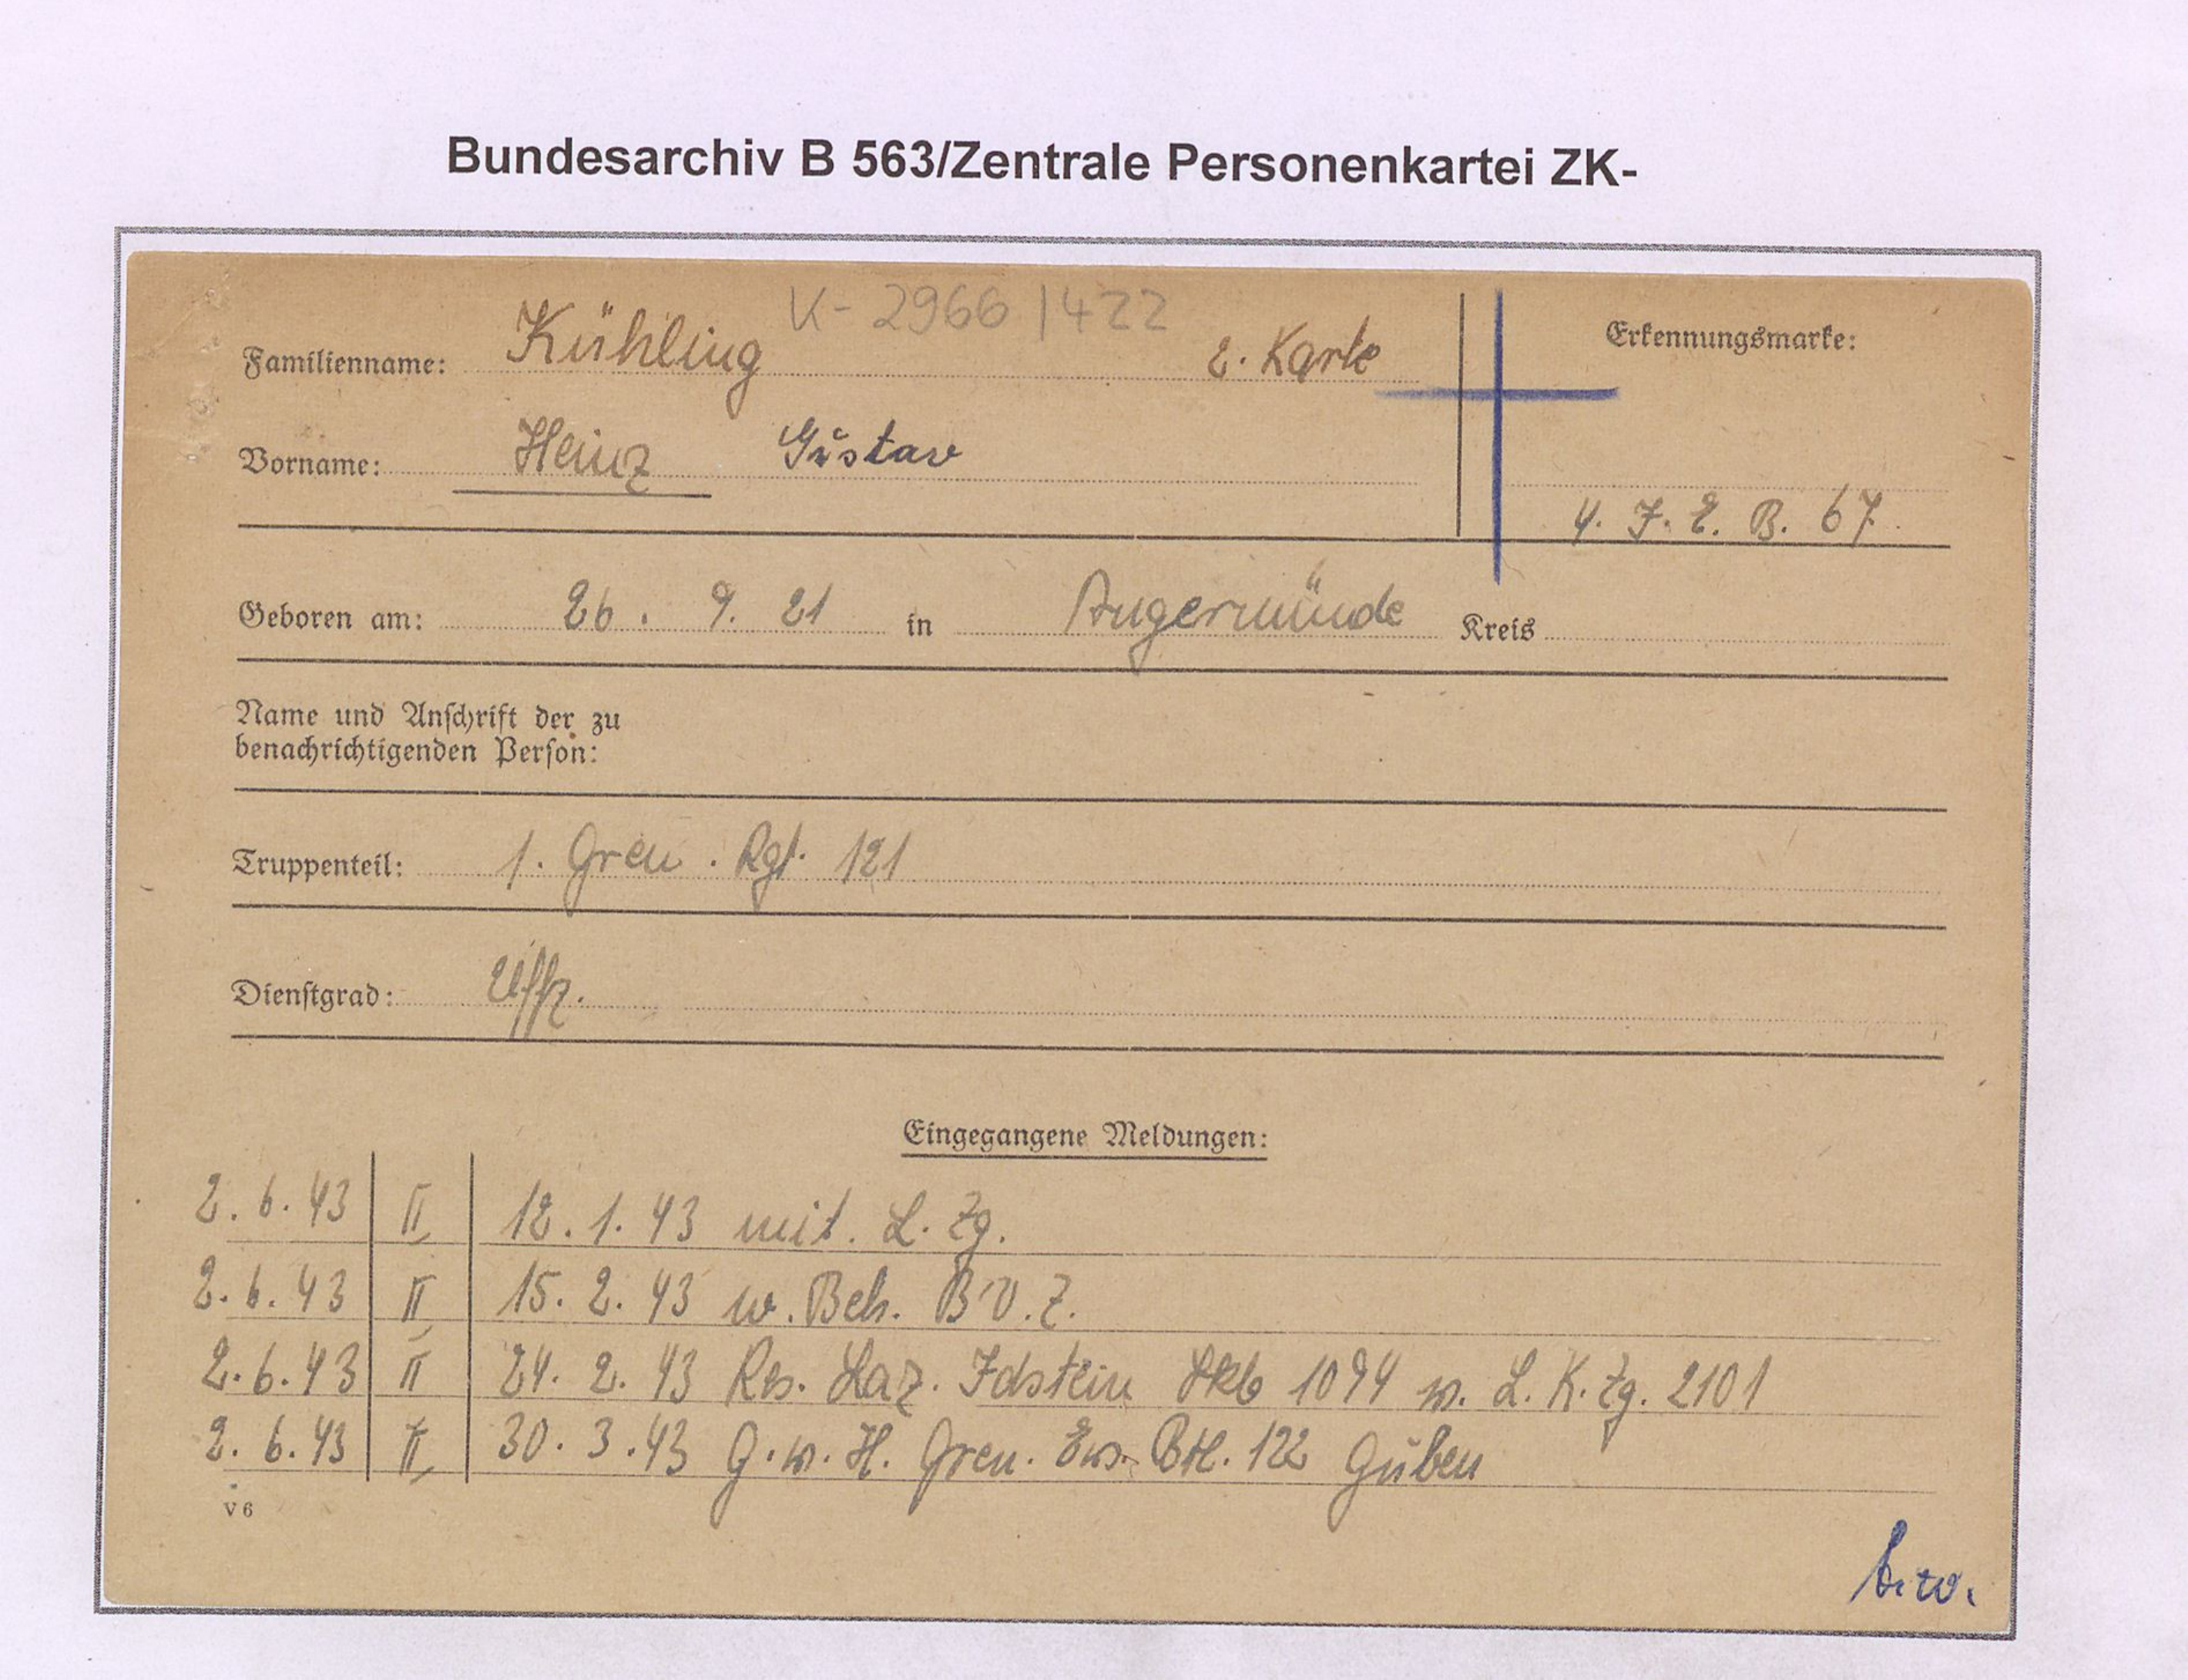 Bundesarchiv B 563/Zentrale Personenkartei ZK-
K-2966/422
Familienname: Kühling 2. Karte
Erkennungsmarke:
Vorname: Heinz Gustav
4. J. E. B. 67.
Geboren am: 26. 9. 21 in Angermünde Kreis
Name und Anschrift der zu
benachrichtigenden Person:
Truppenteil: 1. Gren. Rgt. 121
Dienstgrad: Uffz.
Eingegangene Meldungen:
2. 6. 43 II 12. 1. 43 mit. L. Zg.
2. 6. 43 II 15. 2. 43 w. Beh. B.V.Z.
2. 6. 43 II 24. 2. 43 Res. Laz. Idstein 1094 w. L. K. Zg. 2101
2. 6. 43 II 30. 3. 43 G. w. H. Gren. Ers. Btl. 122 Guben
V 6